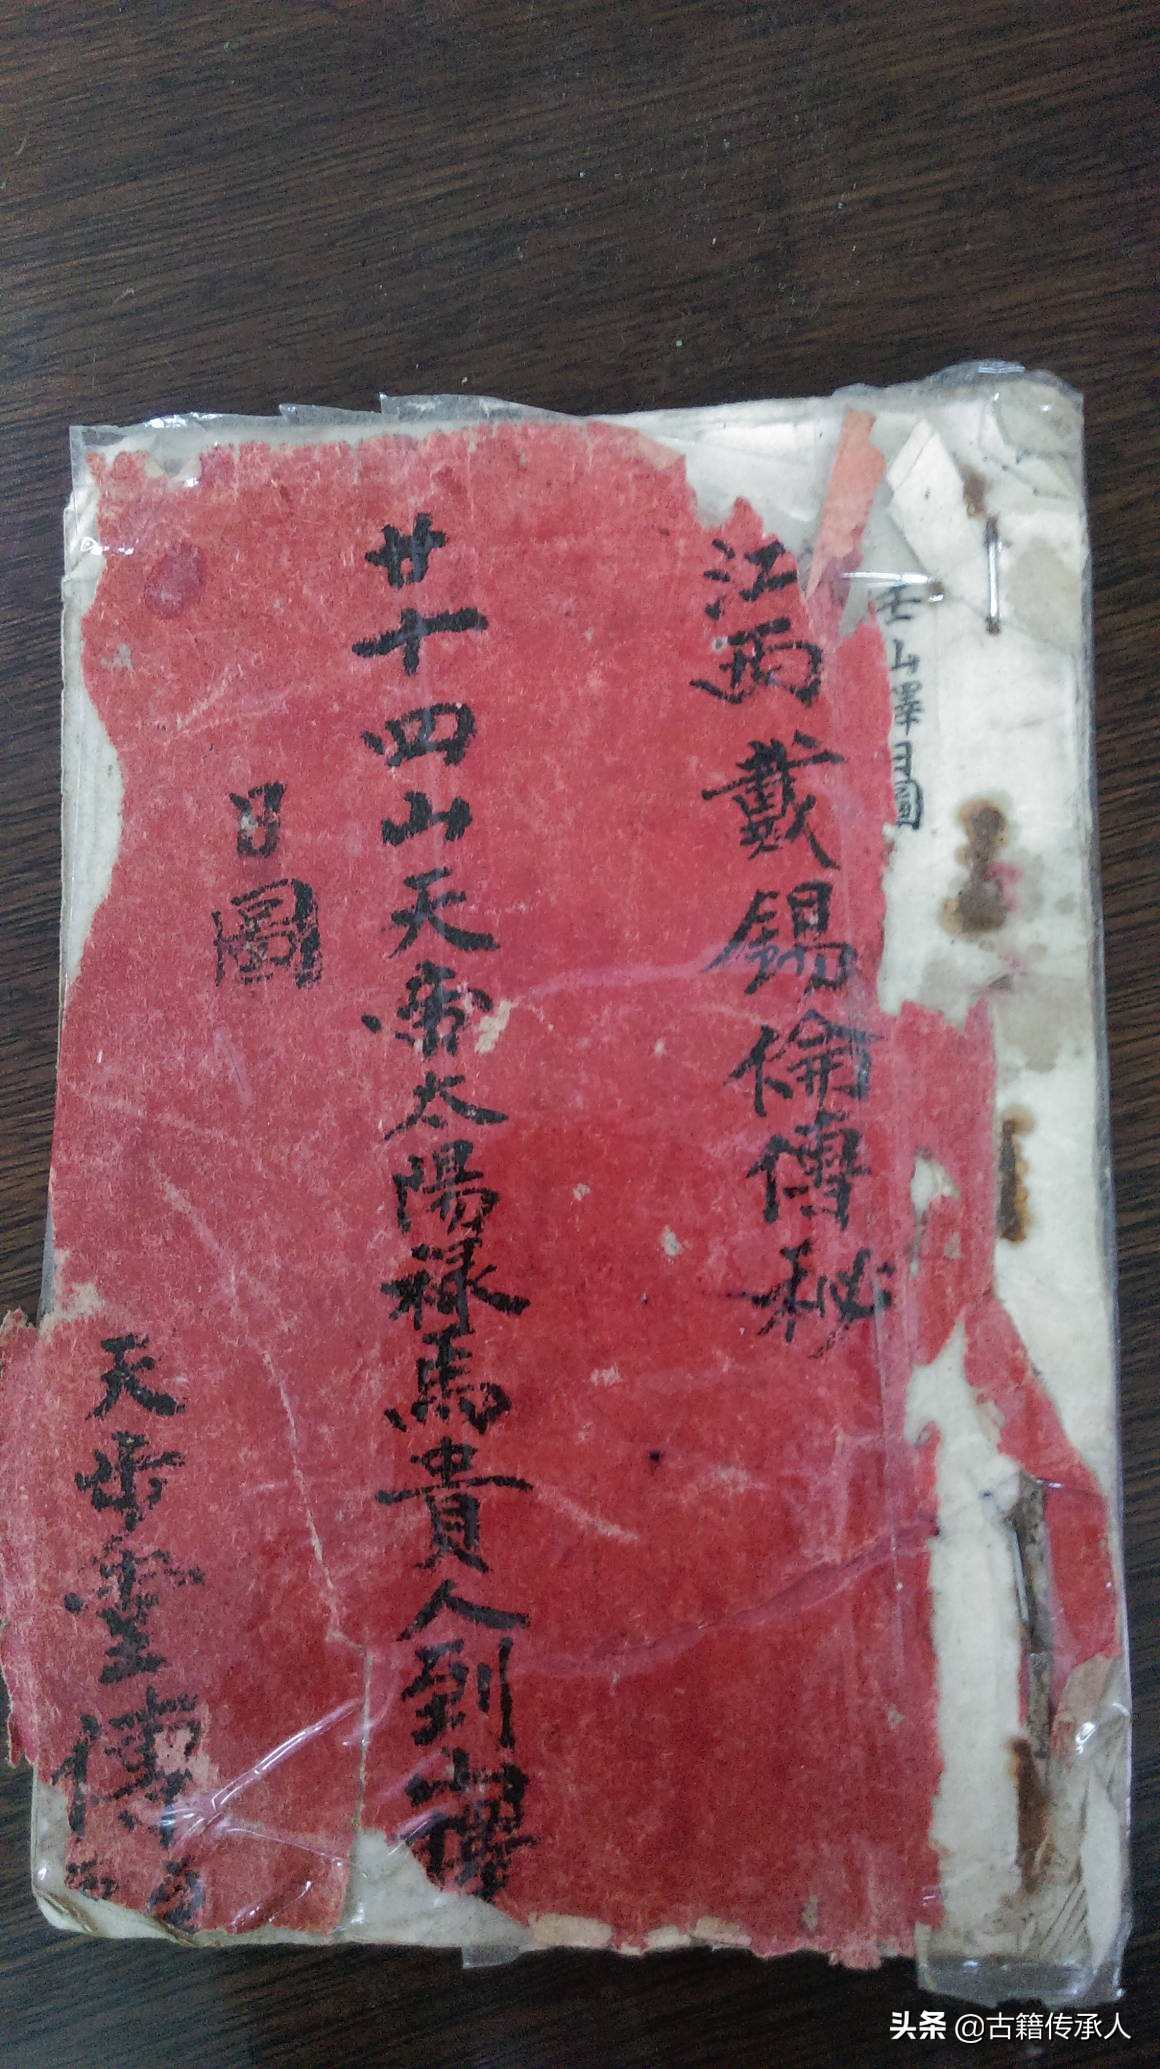 壬山擇日圖
江西戴錫倫傳秘
廿十四山天帝太陽祿馬貴人到山擇
日圖
天步雲傳
头条 @古籍传承人